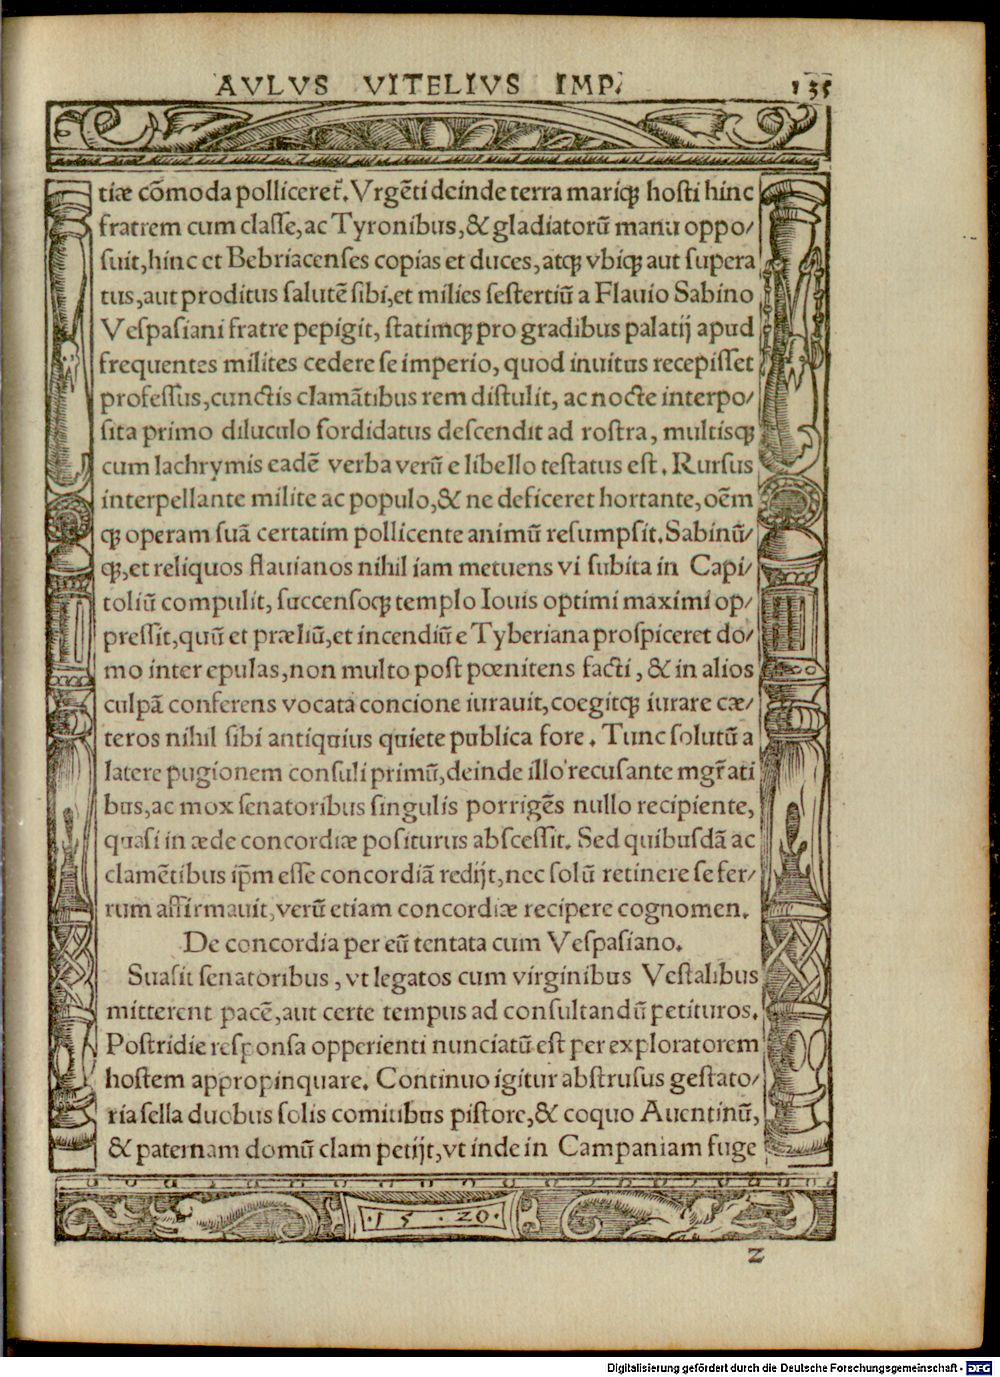 AVLVS VITELIVS IMP. 135
tiæ cõmoda pollicereť. Vrgẽti deinde terra mariqꝫ hosti hinc
fratrem cum classe, ac Tyronibus, & gladiatorũ manu oppo/
suit, hinc et Bebriacenses copias et duces, atqꝫ vbiqꝫ aut supera
tus, aut proditus salutẽ sibi, et milies sestertiũ a Flauio Sabino
Vespasiani fratre pepigit, statimqꝫ pro gradibus palatij apud
frequentes milites cedere se imperio, quod inuitus recepisset
professus, cunctis clamãtibus rem distulit, ac nocte interpo/
sita primo diluculo sordidatus descendit ad rostra, multisqꝫ
cum lachrymis eadẽ verba verũ e libello testatus est. Rursus
interpellante milite ac populo, & ne deficeret hortante, oẽm
qꝫ operam suã certatim pollicente animũ resumpsit. Sabinũ/
qꝫ, et reliquos flauianos nihil iam metuens vi subita in Capi/
toliũ compulit, succensoqꝫ templo Iouis optimi maximi op/
pressit, quũ et præliũ, et incendiũ e Tyberiana prospiceret do/
mo inter epulas, non multo post pœnitens facti, & in alios
culpã conferens vocata concione iurauit, coegitqꝫ iurare cæ/
teros nihil sibi antiquius quiete publica fore. Tunc solutũ a
latere pugionem consuli primũ, deinde illo recusante mgr̃ati
bus, ac mox senatoribus singulis porrigẽs nullo recipiente,
quasi in æde concordiæ positurus abscessit. Sed quibusdã ac
clamẽtibus ip̃m esse concordiã redijt, nec solũ retinere se fer/
rum affirmauit, verũ etiam concordiæ recipere cognomen.
De concordia per eũ tentata cum Vespasiano.
Suasit senatoribus, vt legatos cum virginibus Vestalibus
mitterent pacẽ, aut certe tempus ad consultandũ petituros.
Postridie responsa opperienti nunciatũ est per exploratorem
hostem appropinquare. Continuo igitur abstrusus gestato/
ria sella duobus solis comitibus pistore, & coquo Auentinũ,
& paternam domũ clam petijt, vt inde in Campaniam fuge
·15·20·
Z
Digitalisierung gefördert durch die Deutsche Forschungsgemeinschaft - DFG